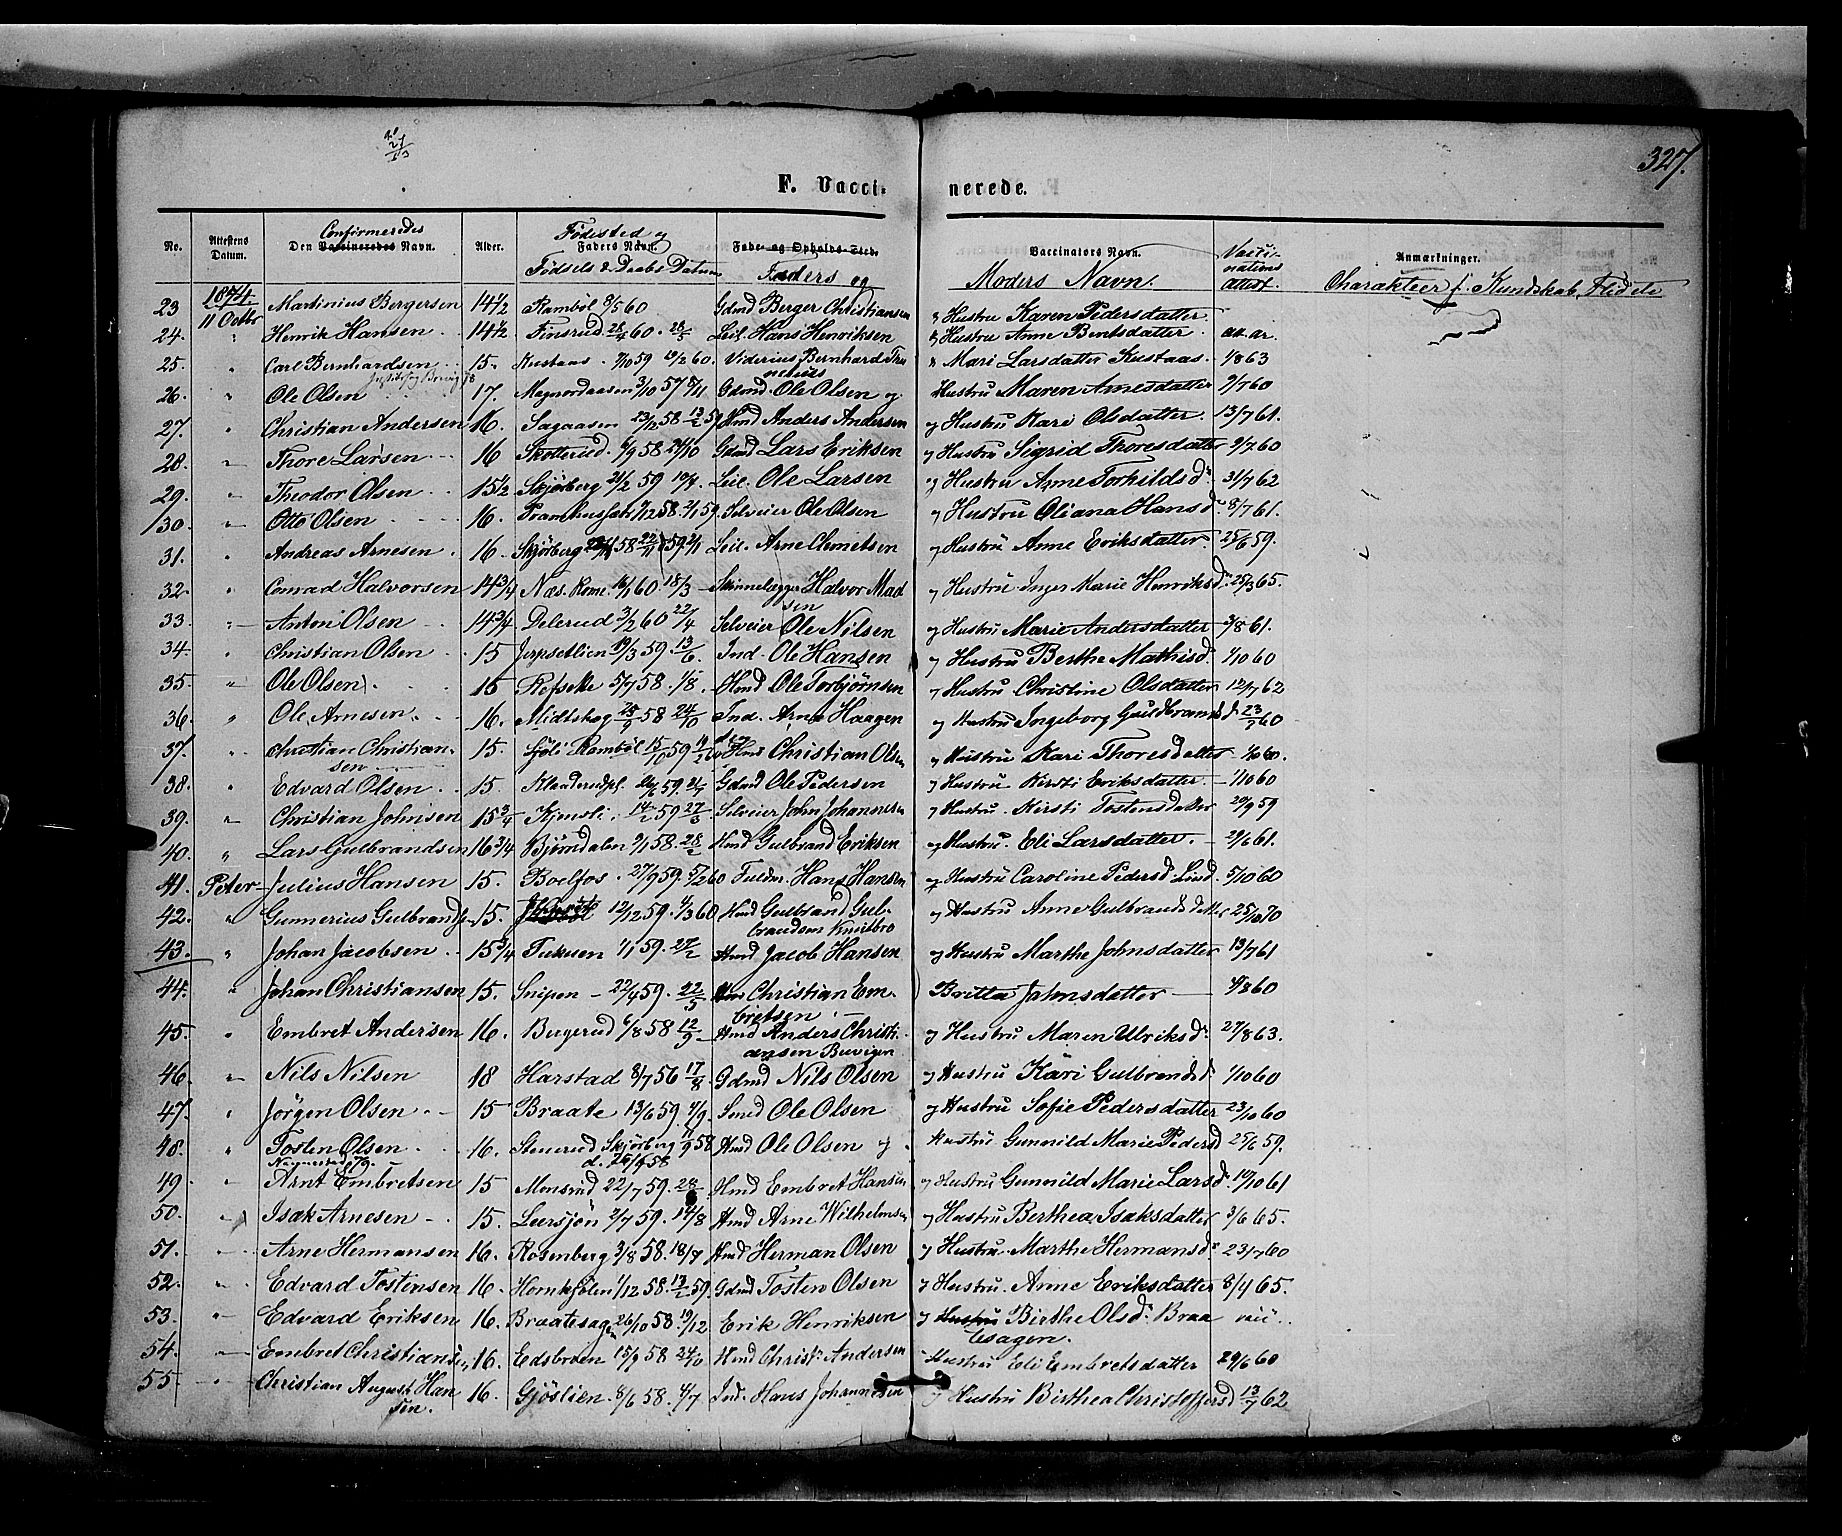 327.
F. Vaccinerede.
No. Attestens Datum. Confirmeredes Den Vaccineredes Navn. Alder. Fødested og Faders Navn. Fødsels & Daabs Datum Føde- og Opholds-Sted. Faders og Vaccinators Navn. Moders Navn. Vaccinations attest. Anmærkninger. Charakteer f. Kundskab, Flid etc
23 1874. 11 Octbr Martinius Bergersen 14 1/2 Rambøl 8/5 60 Gdmd Berger Christiansen Hustru Karen Pedersdatter
24. " Henrik Hansen 14 1/2 Finsrud 28/4 60. 28/5 Leil. Hans Henriksen Hustru Anne Berntsdatter
25. " Carl Bernhardsen 15. Kustaas 59 60. Bernhard Mari Larsdatter Kustaas 63
26. " Ole Olsen 17. 3/10 57 5/11 Gdmd. Ole Olsen og Hustru Maren Arnesdatter 9/7 60
27. " Christian Andersen 16. Sagaasen 23/12 58. 13/2 59 Hmd Anders Andersen og Hustru Kari Olsdatter 13/7 61.
28. " Thore Larsen 16 Skotterud 6/9 58 Gdmd Lars Eriksen og Hustru Sigrid Thoresdatter 9/7 60
29. " Theodor Olsen 15 1/2 Skjørberg 21/2 59 Leil. Ole Larsen og Hustru Anne Torkildsd. 31/7 62
30. " Otto Olsen 16. 58. 59. Selveier Ole Olsen og Hustru Oliana Hansd. 8/7 61.
31. " Andreas Arnesen 16. Skjørberg 58 Leil. Arne Clemetsen og Hustru Anne Eriksdatter 25/6 59.
32. " Conrad Halvorsen 14 3/4 Næs. Rome. 16/1 60. 18/3 Skinnelægger Halvor Madsen og Hustru Inger Marie Henriksd. 25/3 65.
33. " Anton Olsen 14 3/4 Delerud 3/2 60 22/4 Selveier Ole Nilsen og Hustru Marie Andersdatter 61.
34. " Christian Olsen 15 Jerpsetlien 19/3 59. 13/6. Ind. Ole Hansen og Hustru Berthe Mathisd. 1/10 60
35. " Ole Olsen 15 Refsette 5/7 58. 1/8. Hmd Ole Torbjørnsen og Hustru Christine Olsdatter 12/7 62
36. " Ole Arnesen 16. Midtskog 28/9 58 24/10 Ind. Arne Haagensen og Hustru Ingeborg Guldbrandsd. 60
37. " Christian Christiansen 15. Sjøli Rambøl 15/10 59 Hmd Christian Olsen og Hustru Kari Thoresdatter 60.
38. " Edvard Olsen 15. 59. Gdmd Ole Pedersen og Hustru Kirsti Eriksdatter 1/10 60
39. " Christian Johnsen 15 3/4 Kjensli 14/2 59 27/3 Selveier John Johannesen og Hustru Kirsti Tostensdatter 20/9 59
40. " Lars Gulbrandsen 16 3/4 Bjørndalen 9/1 58. 28/2 Hmd Gulbrand Eriksen og Hustru. Eli Larsdatter. 29/6 61.
41. Peter Julius Hansen 15. Boelfos 27/9 59. 5/2 60 Fuldm. Hans Hansen og Hustru Caroline Pedersd. Lund. 5/10 60
42. " Gunnerius Gulbrandsen 15. 12/12 59. 4/3 60 Hmd Gulbrand Gulbrandsen og Hustru Anne Gulbrandsdatter 25/10 70
43. " Johan Jacobsen 15 3/4 1/1 59. 27/2 Hmd Jacob Hansen og Hustru Marthe Johnsdatter 13/7 61
44. " Johan Christiansen 15. Snipen 22/4 59. 22/5 Christian Embretsen Britta Jahnsdatter 60
45. " Embret Andersen 16. Bergerud 6/8 58 12/9 Hmd Anders Christiansen Buvigen og Hustru Maren Ulriksd. 27/8 63.
46. " Nils Nilsen 18 Harstad 8/7 56 17/8 Gdmd Nils Olsen og Hustru Kari Gulbrandsd. 1/10 60
47. " Jørgen Olsen 15 Braate 13/6 59. 4/9. Smed Ole Olsen og Hustru Sofie Pedersdatter 23/10 60
48. " Tosten Olsen 16. Stenerud Skjørberg 58 Hmd Ole Olsen og Hustru Gunnild Marie Pedersd. 25/6 59.
d. 26/9 58
49. " Arnt Embretsen 15 Monsrud 22/7 59. 28/8 Hmd Embret Hansen og Hustru Gunnild Marie Larsd. 19/10 61
50. " Isak Arnesen 15. Leersjøn 2/7 59. 14/8 Hmd Arne Wilhelmsen og Hustru Berthea Isaksdatter 3/6 65.
51. " Arne Hermansen 16. Rosenberg 3/8 58. 18/7 Hmd Herman Olsen og Hustru Marthe Hermansd. 23/7 60
52. " Edvard Tostensen 16. Hornkjølen 1/12 58. 13/2 59. Gdmd Tosten Olsen og Hustru. Anne Eriksdatter 65.
53. " Edvard Eriksen 16. Braatesagen 26/10 58. 19/12 Erik Henriksen og Hustru Birthe Olsd. Braatesagen.
54. " Embret Christiansen 16. Edsbroen 15/9 58 24/10 Hmd Christ. Andersen Hustru Eli Embretsdatter 29/6 60
55. " Christian August Hansen. 16. Gjøslien. 8/6 58. 4/7 Ind. Hans Johannesen og Hustru Birthea Christoffersd. 13/7 62